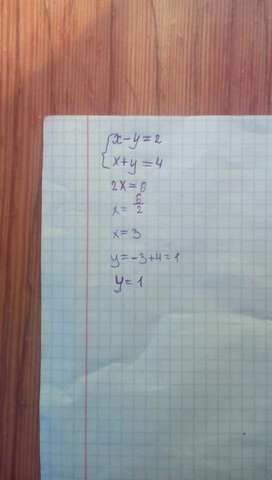 x-y=2
x+y=4
2x=6
x=6/2
x=3
y=-3+4=1
y=1